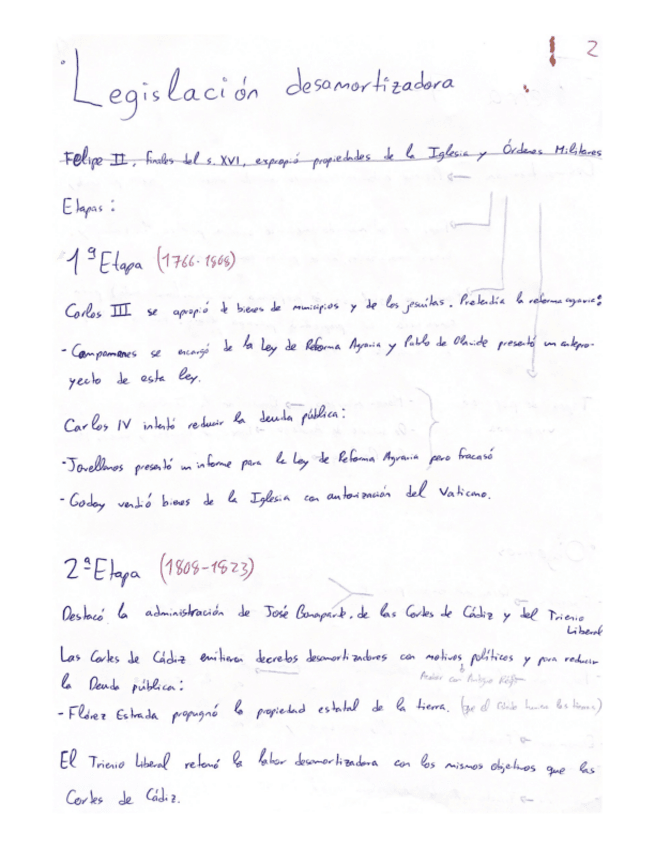 ! 2
Legislación desamortizadora
Felipe II, finales del s. XVI, expropió propiedades de la Iglesia y Órdenes Militares
Etapas:
1ª Etapa (1766-1808)
Carlos III se apropió de bienes de municipios y de los jesuitas. Pretendía la reforma agraria:
- Campomanes se encargó de la Ley de Reforma Agraria y Pablo de Olavide presentó un antepro-
yecto de esta ley.
Carlos IV intentó reducir la deuda pública:
- Jovellanos presentó un informe para la Ley de Reforma Agraria pero fracasó
- Godoy vendió bienes de la Iglesia con autorización del Vaticano.
2ª Etapa (1808-1823)
Destacó la administración de José Bonaparte, de las Cortes de Cádiz y del Trienio
Liberal
Las Cortes de Cádiz emitieron decretos desamortizadores con motivos políticos y para reducir
la Deuda pública:
Acabar con Antiguo Rég
- Flórez Estrada propugnó la propiedad estatal de la tierra. (que el las tierras)
El Trienio Liberal retomó la labor desamortizadora con los mismos objetivos que las
Cortes de Cádiz.